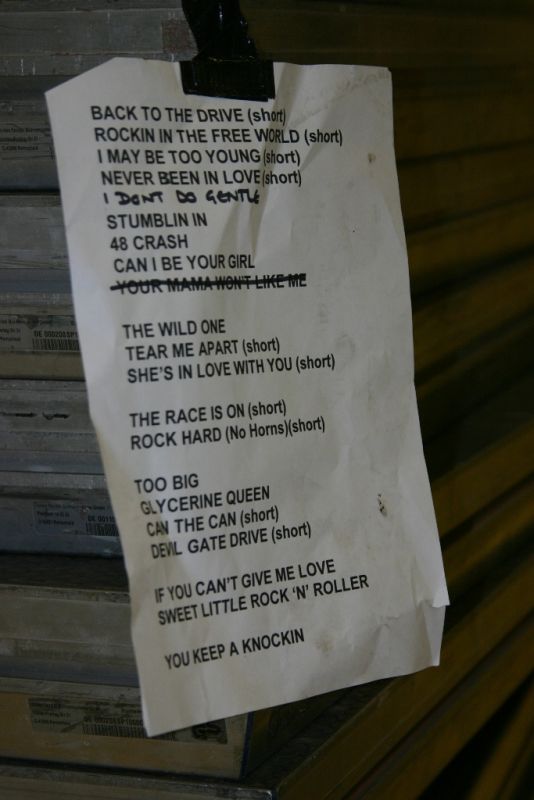 BACK TO THE DRIVE (short)
ROCKIN IN THE FREE WORLD (short)
I MAY BE TOO YOUNG (short)
NEVER BEEN IN LOVE (short)
I DONT DO GENTLE
STUMBLIN IN
48 CRASH
CAN I BE YOUR GIRL
YOUR MAMA WON'T LIKE ME
THE WILD ONE
TEAR ME APART (short)
SHE'S IN LOVE WITH YOU (short)
THE RACE IS ON (short)
ROCK HARD (No Horns)(short)
TOO BIG
GLYCERINE QUEEN
CAN THE CAN (short)
DEVIL GATE DRIVE (short)
IF YOU CAN'T GIVE ME LOVE
SWEET LITTLE ROCK 'N' ROLLER
YOU KEEP A KNOCKIN